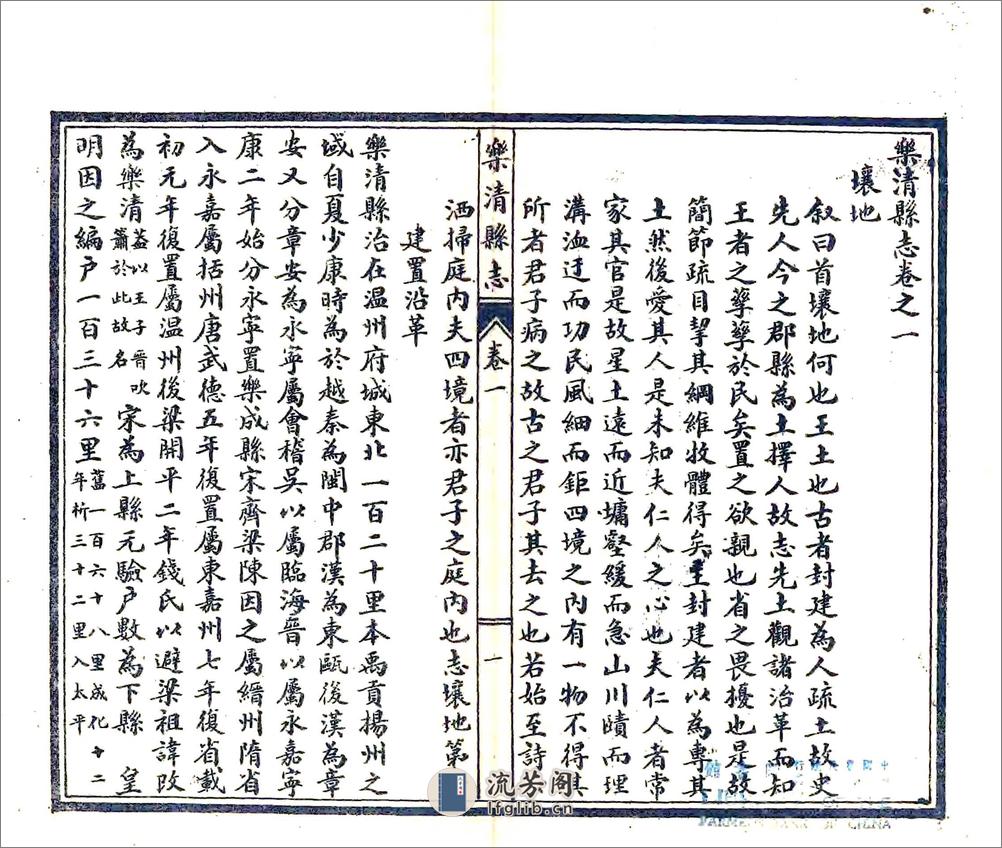 樂清縣志卷之一
壤地
叙曰首壤地何也王土也古者封建為人疏土故史
先人今之郡縣為土擇人故志先土觀諸治革而知
王者之孳孳於民矣置之欲親也省之畏擾也是故
簡節疏目挈其綱維牧體得矣主封建者以為專其
土然後愛其人是未知夫仁人之心也夫仁人者常
家其官是故星土遠而近墉壑緩而急山川賾而理
溝洫迂而功民風細而鉅四境之内有一物不得其
所者君子病之故古之君子其去之也若始至詩曰
洒掃庭内夫四境者亦君子之庭内也志壤地第一
建置沿革
樂清縣治在温州府城東北一百二十里本禹貢揚州之
域自夏少康時為於越秦為閩中郡漢為東甌後漢為章
安又分章安為永寧屬會稽吳以屬臨海晉以屬永嘉寧
康二年始分永寧置樂成縣宋齊梁陳因之屬縉州隋省
入永嘉屬括州唐武德五年復置屬東嘉州七年復省載
初元年復置屬温州後梁開平二年錢氏以避梁祖諱改
為樂清蓋以王子晉吹簫於此故名宋為上縣元驗户數為下縣 皇
明因之編户一百三十六里舊一百六十八里成化十二年析三十二里入太平
樂清縣志
卷一
一
流芳阁
lfglib.cn